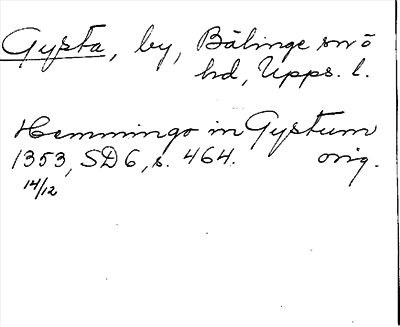 Gysta, by, Bälinge sn o
hd, Upps. l.
Hemmingo in Gystum
1353, SD 6, s. 464. orig.
14/12